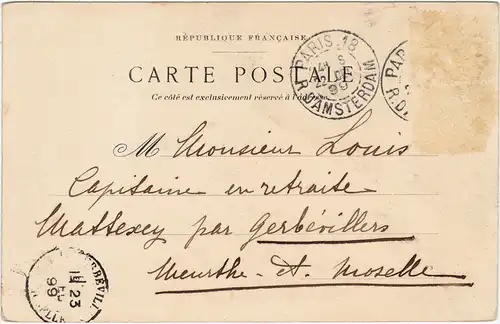 RÉPUBLIQUE FRANÇAISE
CARTE POSTALE
Ce côté est exclusivement réservé à l'adresse
PARIS 18
R. D'AMSTERDAM
99
PARIS
R. D
M Monsieur Louis
Capitaine en retraite
Mattexey par Gerbévillers
Meurthe-et-Moselle
23
99